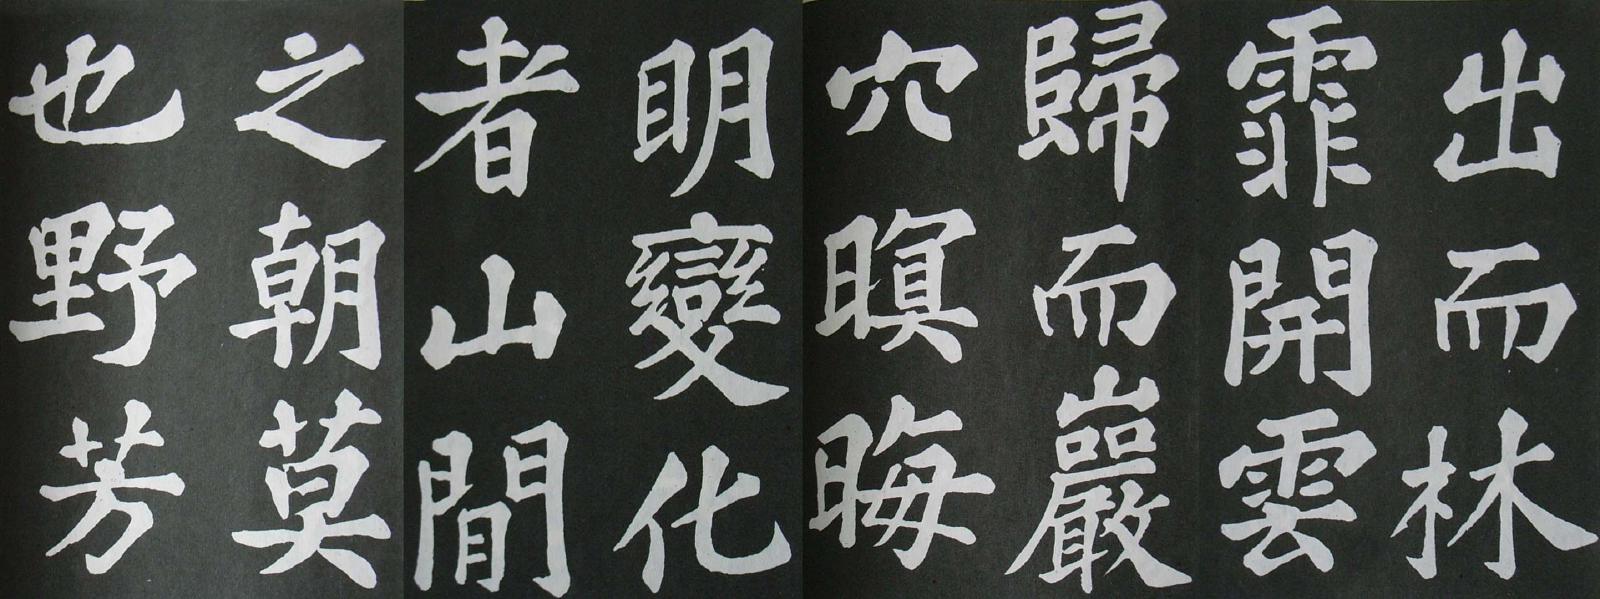 出而林
霏開雲
歸而巖
穴暝晦
明變化
者山間
之朝莫
也野芳